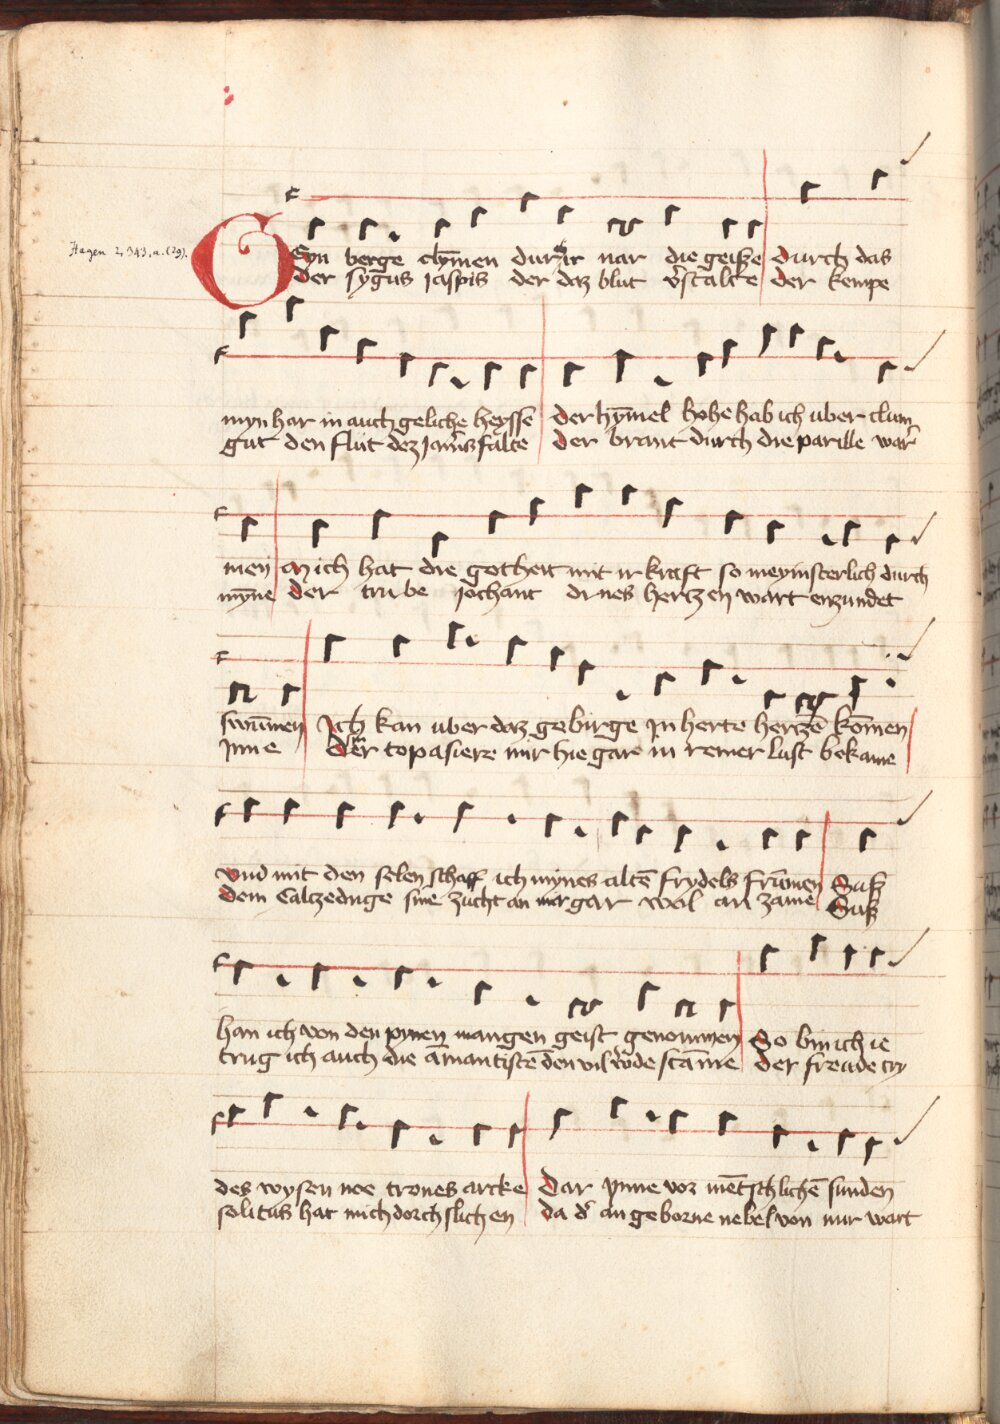 Hagen 2, 343, a. (29).
GEyn berge clȳmen durar nar die geisze durch das
der sygus jaspis der daz blut v̓stalte der kempe
myn har in auch geliche heysse der hȳmel hohe hab ich uber clum
gut den flut dez jamers falte der brant durch die parille war
men an ich hat die gotheit mit ir kraft so meynsterlich durch
myne der trube jochant dines hertzen wart enzundet
swūmen Ich kan uber daz gebirge In herte hertzē kōmen
Inne der topasiere mir hie gare in reiner lust bekame
vnd mit den selen schaff ich mynes altē frydels frūmen Susz
dem Calzednge sine zucht an mir gar wol an zame Susz
han ich von den pynen mangen geist genommen So bin ich ie
trug ich auch die amantistē den vil wde stāme der freude try
des wysen noe trones arcke Dar ynne vor mētschlichē sunden
solitus hat mich dorch slichen da d̓ an geborne nebel von mir wart